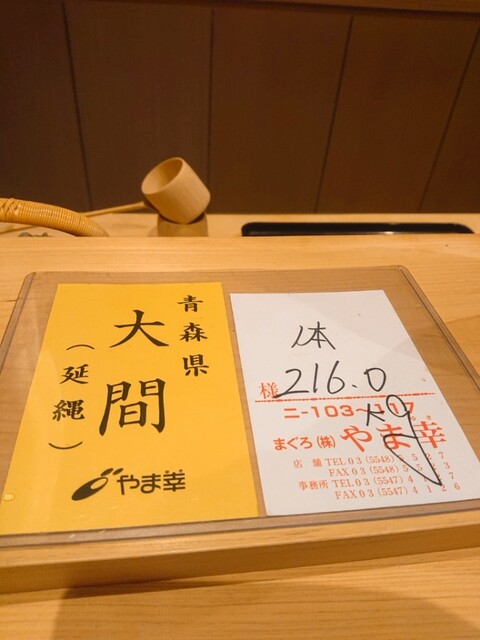 青森県
大間
(延縄)
やま幸
体
216.0
様
ニ-103~117
まぐろ(株)やま幸
店舗 TEL03(5548)
FAX03(5548)
事務所 TEL03(5547)
FAX03(5547)4126